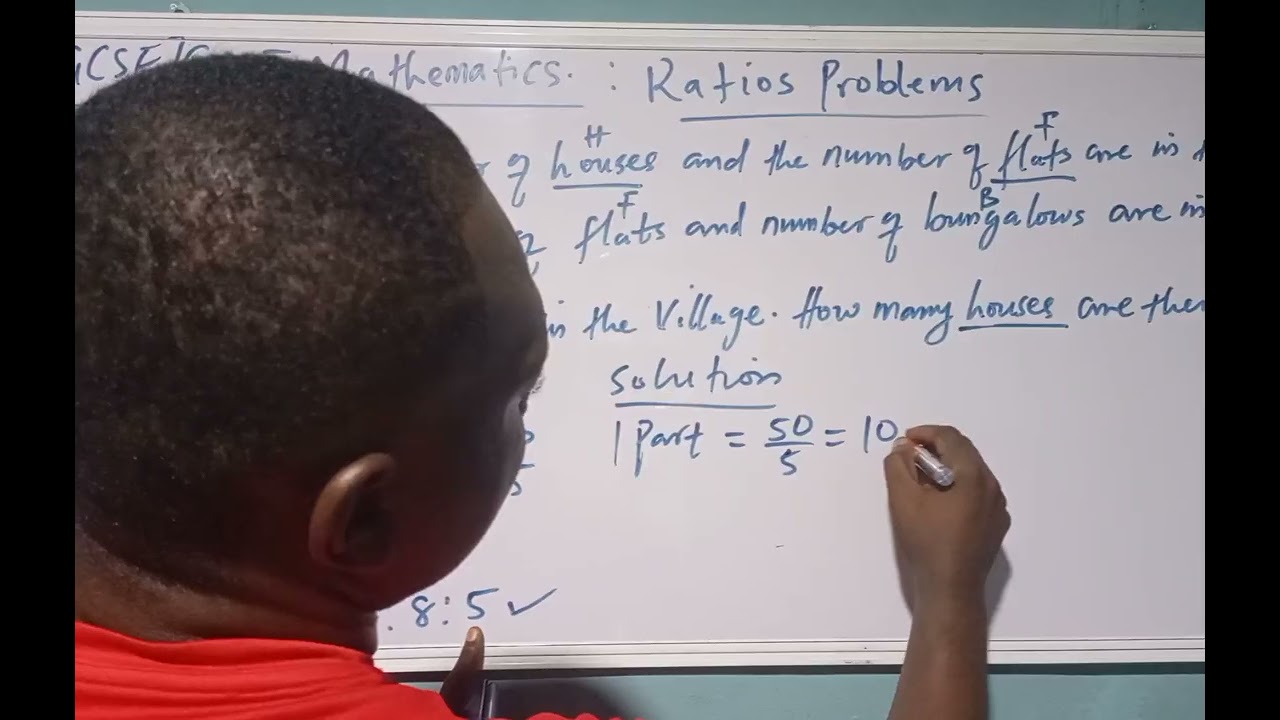 GCSE Mathematics. : Ratios Problems
H F
of houses and the number of flats are in
F B
flats and number of bungalows are in
in the Village. How many houses are
Solution
1 Part = 50/5 = 10
5
8:5 ✓